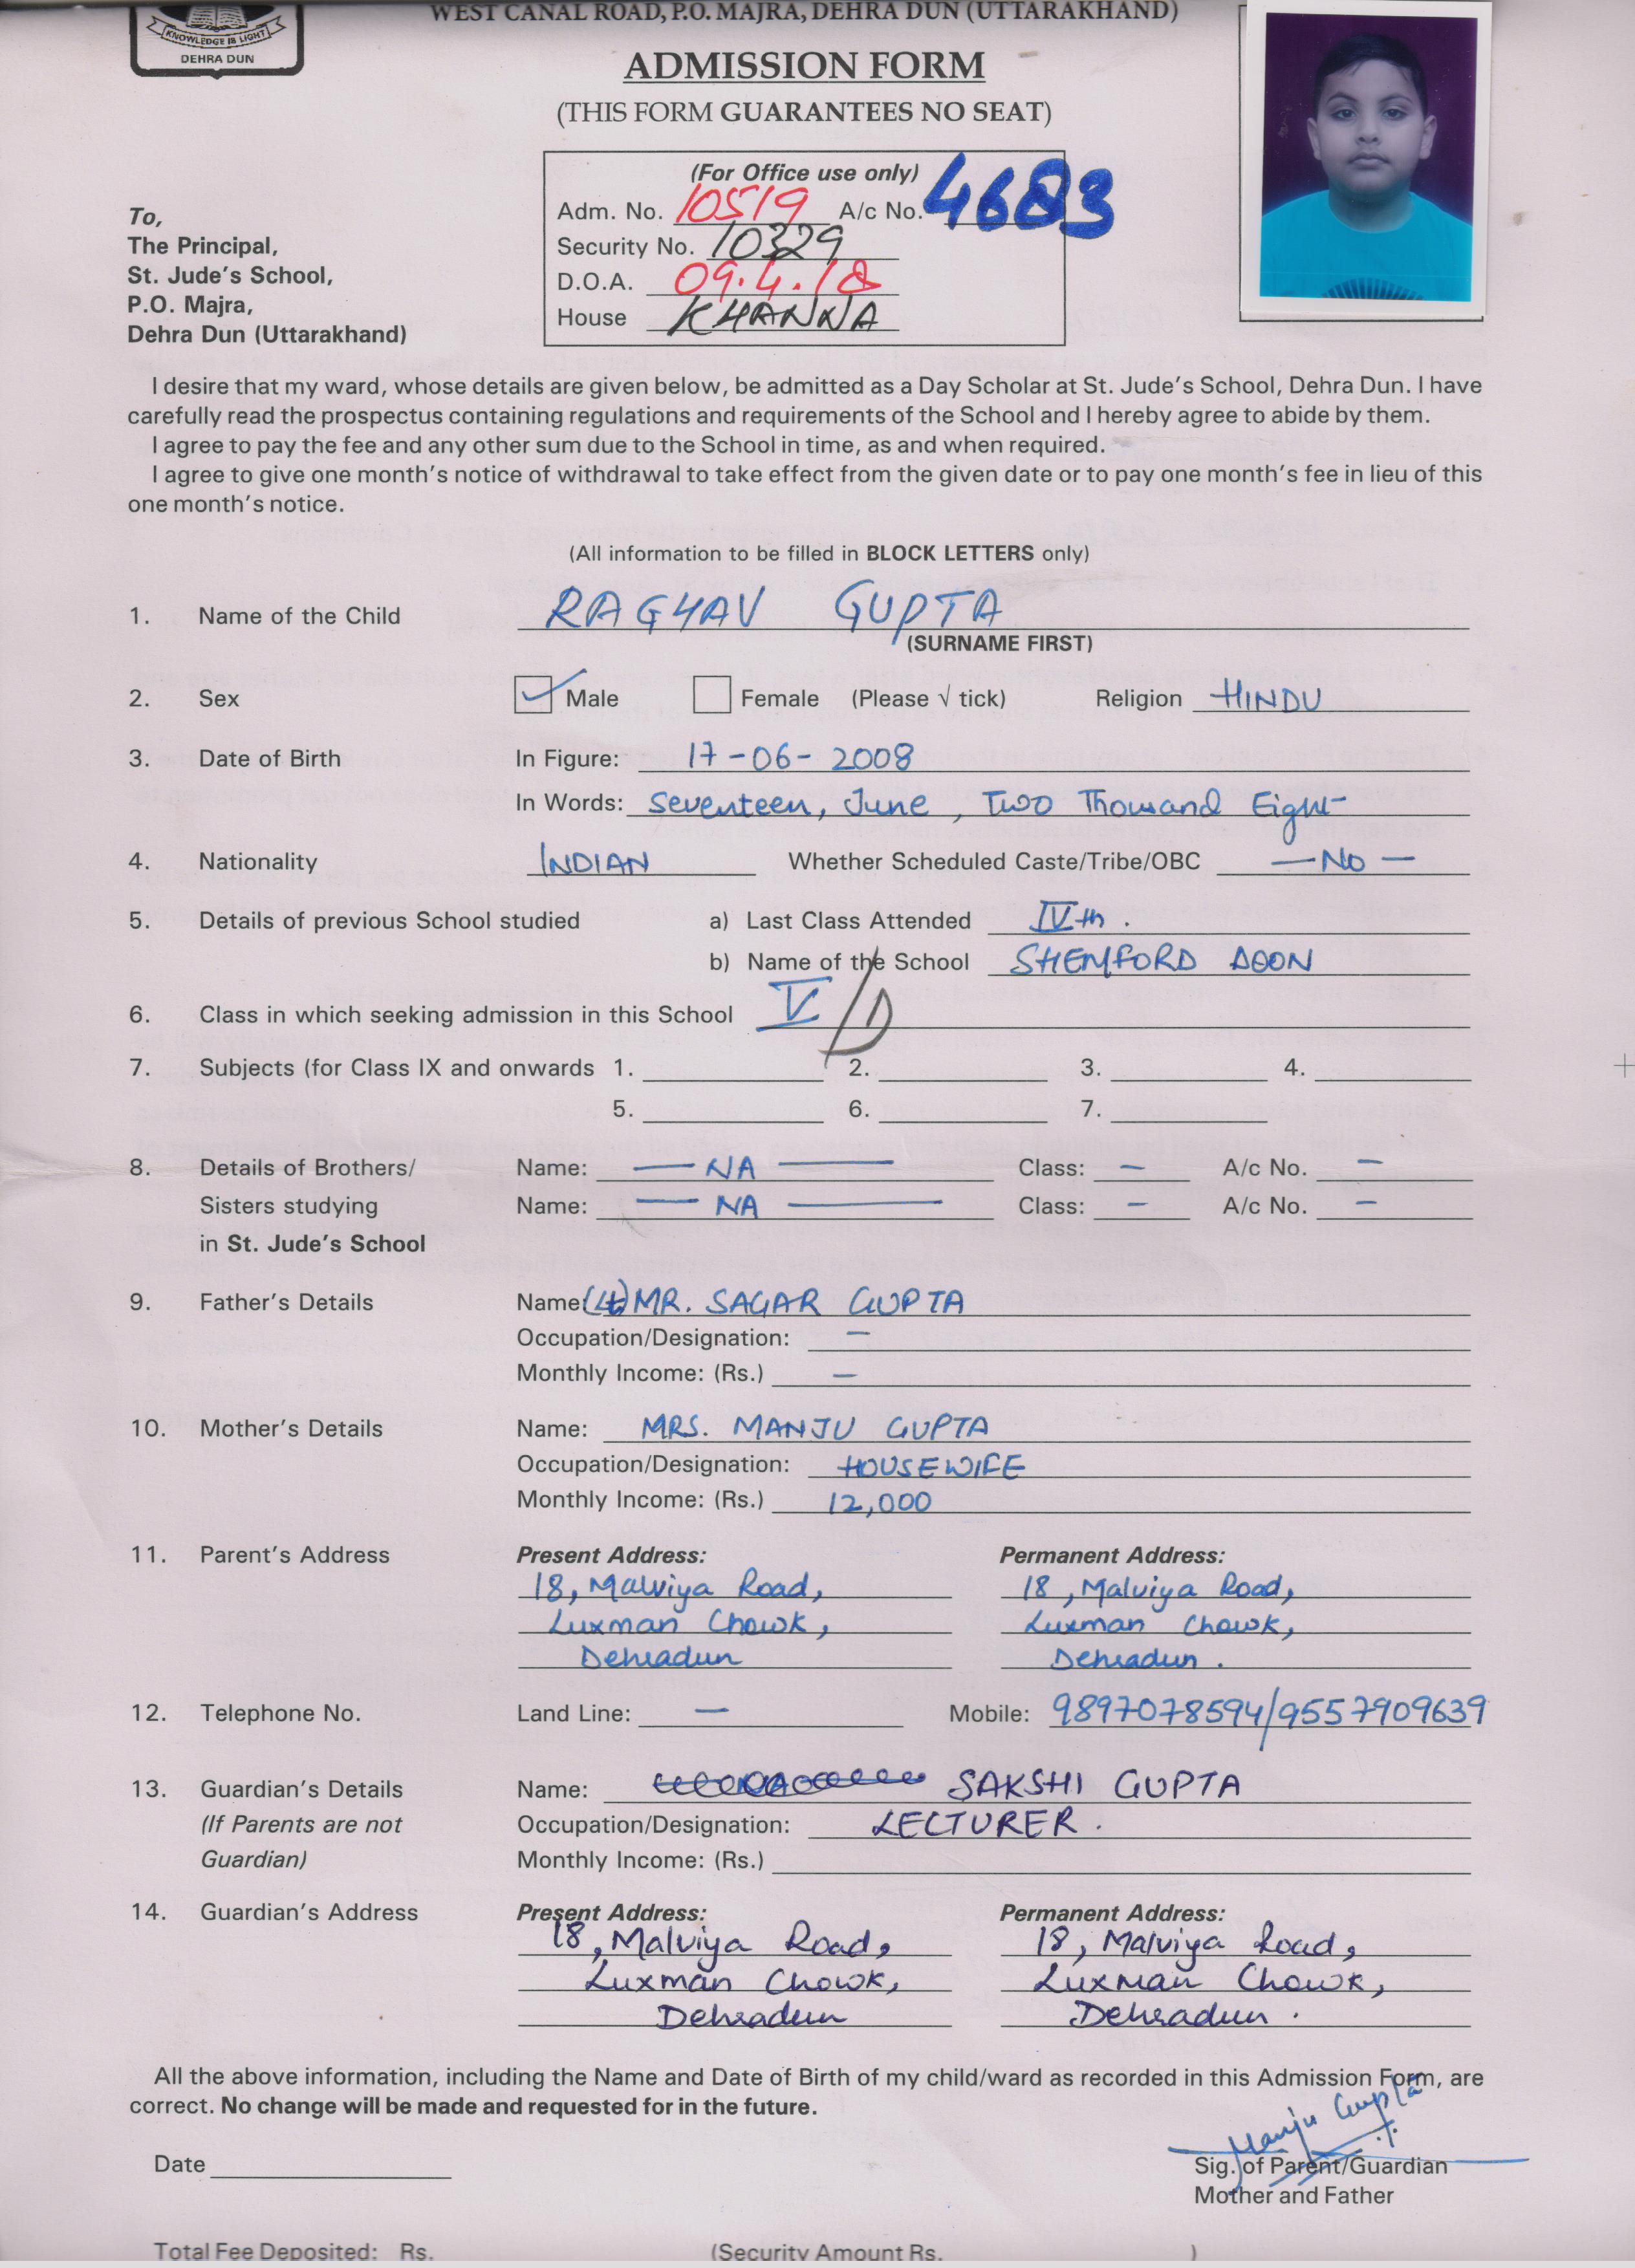 WEST CANAL ROAD, P.O. MAJRA, DEHRA DUN (UTTARAKHAND)
KNOWLEDGE IS LIGHT
DEHRA DUN
ADMISSION FORM
(THIS FORM GUARANTEES NO SEAT)
(For Office use only)
Adm. No. 10519 A/c No. 4683
Security No. 10329
D.O.A. 09.4.18
House KHANNA
To,
The Principal,
St. Jude's School,
P.O. Majra,
Dehra Dun (Uttarakhand)
I desire that my ward, whose details are given below, be admitted as a Day Scholar at St. Jude's School, Dehra Dun. I have
carefully read the prospectus containing regulations and requirements of the School and I hereby agree to abide by them.
I agree to pay the fee and any other sum due to the School in time, as and when required.
I agree to give one month's notice of withdrawal to take effect from the given date or to pay one month's fee in lieu of this
one month's notice.
(All information to be filled in BLOCK LETTERS only)
1. Name of the Child RAGHAV GUPTA
(SURNAME FIRST)
2. Sex Male Female (Please √ tick) Religion HINDU
3. Date of Birth In Figure: 17-06-2008
In Words: Seventeen, June, Two Thousand Eight
4. Nationality INDIAN Whether Scheduled Caste/Tribe/OBC —No—
5. Details of previous School studied a) Last Class Attended IVth.
b) Name of the School SHEMFORD DOON
6. Class in which seeking admission in this School V/D
7. Subjects (for Class IX and onwards 1. 2. 3. 4.
5. 6. 7.
8. Details of Brothers/ Name: — NA — Class: — A/c No. —
Sisters studying Name: — NA — Class: — A/c No. —
in St. Jude's School
9. Father's Details Name: MR. SAGAR GUPTA
Occupation/Designation: —
Monthly Income: (Rs.) —
10. Mother's Details Name: MRS. MANJU GUPTA
Occupation/Designation: HOUSEWIFE
Monthly Income: (Rs.) 12,000
11. Parent's Address Present Address: Permanent Address:
18, Malviya Road, 18, Malviya Road,
Luxman Chowk, Luxman Chowk,
Dehradun Dehradun.
12. Telephone No. Land Line: — Mobile: 9897078594/9557909639
13. Guardian's Details Name: SAKSHI GUPTA
(If Parents are not Occupation/Designation: LECTURER.
Guardian) Monthly Income: (Rs.)
14. Guardian's Address Present Address: Permanent Address:
18, Malviya Road, 18, Malviya Road,
Luxman Chowk, Luxman Chowk,
Dehradun Dehradun.
All the above information, including the Name and Date of Birth of my child/ward as recorded in this Admission Form, are
correct. No change will be made and requested for in the future.
Manju Gupta
Date Sig. of Parent/Guardian
Mother and Father
Total Fee Deposited: Rs. (Security Amount Rs. )